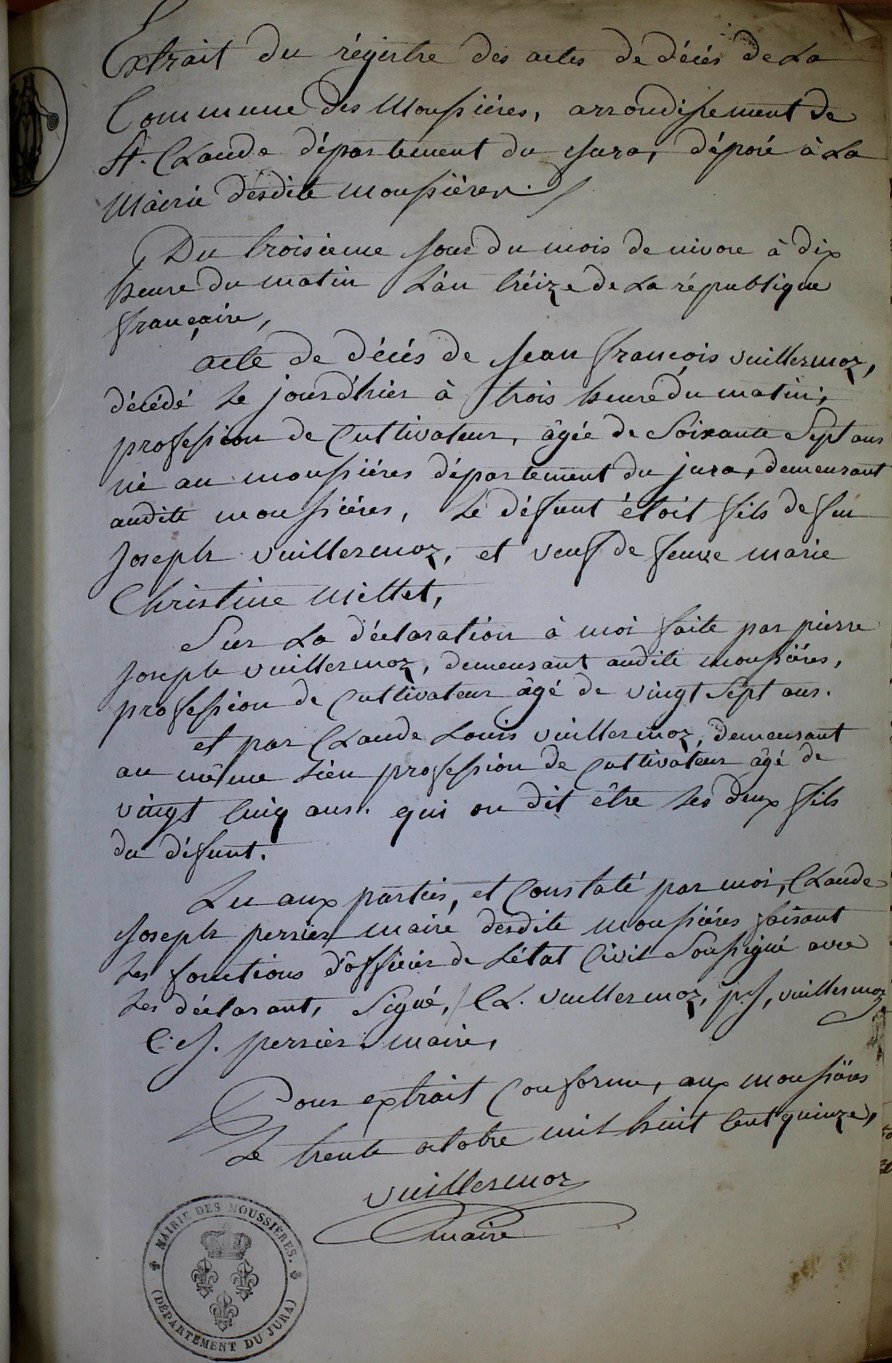 Extrait du régistre des actes de décés de La
Commune des Moussiéres, arrondissement de
St. Claude département du jura, déposé à La
Mairie desdite moussiéres.
Du troisieme jour du mois de nivose à dix
heure du matin L'an treize de La république
françaire,
acte de décés de jean françois vuillermoz,
décédé Le jour d'hier à trois heure du matin,
profession de Cultivateur, âgée de Soixante Sept ans
né au moussiéres département du jura, demeurant
audite moussiéres, Le défunt étoit fils de feu
joseph vuillermoz, et veuf de feuve marie
Christine Millet,
Sur La déclaration à moi faite par pierre
joseph vuillermoz, demeurant audite moussiéres,
profession de Cultivateur âgé de vingt Sept ans.
et par Claude Louis vuillermoz, demeurant
au même Lieu profession de Cultivateur âgé de
vingt Cinq ans. qui on dit être Les deux fils
du défunt.
Lu aux parties, et Constaté par moi, Claude
joseph perrier maire desdite moussiéres faisant
Les fonctions d'officier de L'état Civil Soussigné avec
Les déclarant, Signé, CL. vuillermoz, p.j, vuillermoz
C. j. perrier maire,
Pour extrait Conforme, aux moussiéres
Le trente octobre mil huit Cent quinze,
vuillermoz
maire
MAIRIE DES MOUSSIÈRES.
(DÉPARTEMENT DU JURA)